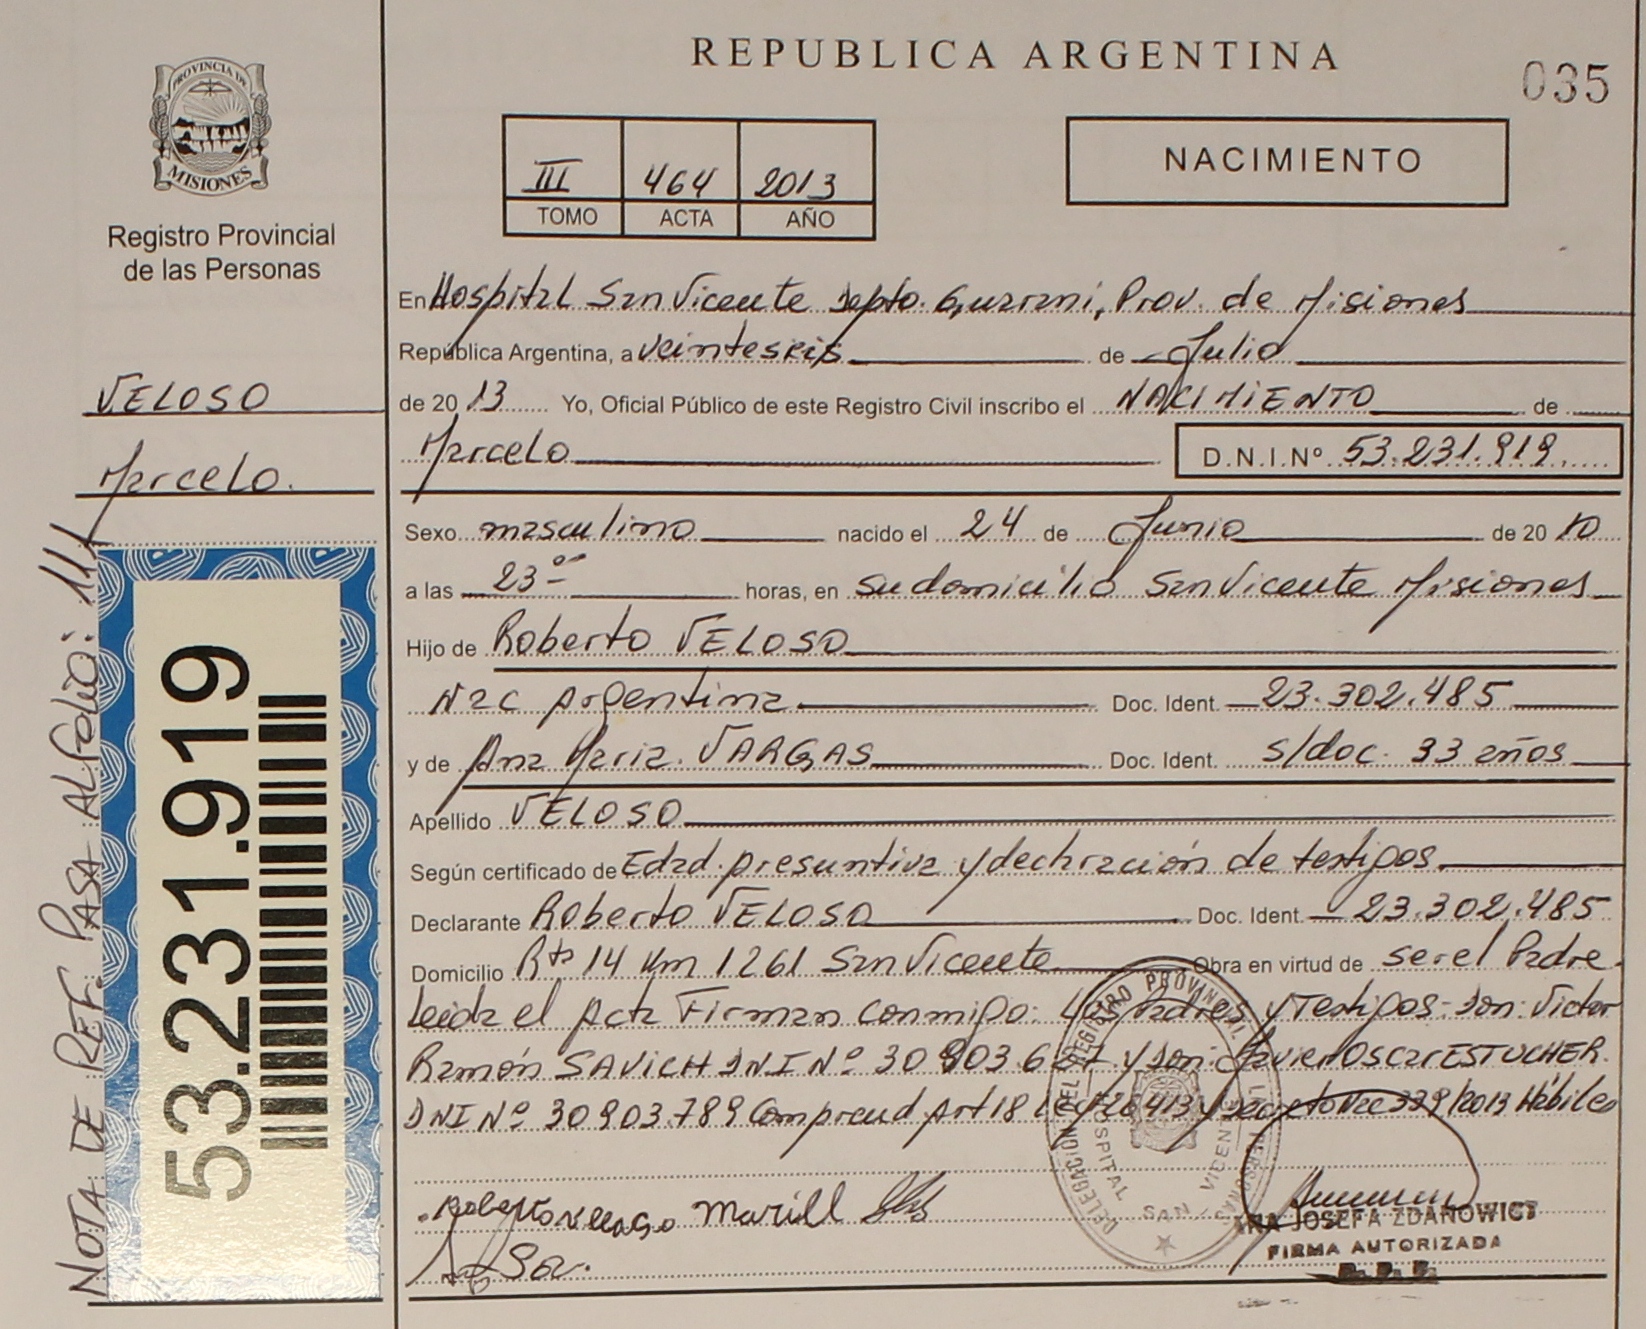 REPUBLICA ARGENTINA
035
PROVINCIA DE
MISIONES
Registro Provincial
de las Personas
III 464 2013
TOMO ACTA AÑO
NACIMIENTO
VELOSO
Marcelo.
NOTA DE REF. PASA AL FOLIO: 111
53.231.919
En Hospital San Vicente Depto. Guarani, Prov. de Misiones
República Argentina, a veinteseis de Julio
de 20 13 Yo, Oficial Público de este Registro Civil inscribo el NACIMIENTO de
Marcelo D.N.I.Nº 53.231.919
Sexo masculino nacido el 24 de Junio de 20 10
a las 23 horas, en su domicilio San Vicente Misiones
Hijo de Roberto VELOSO
Nac Argentina Doc. Ident. 23.302.485
y de Ana Maria. VARGAS Doc. Ident. s/doc. 33 años
Apellido VELOSO
Según certificado de Edad presuntiva y declaración de testigos.
Declarante Roberto VELOSO Doc. Ident. 23.302.485
Domicilio Rta 14 Km 1261 San Vicente Obra en virtud de ser el Padre
Leida el Acta Firman conmigo: Los Padres y Testigos: Don: Victor
Ramón SAVICH DNI Nº 30 903.6 7 y Don: Javier Oscar ESTUCHER.
DNI Nº 30903.789 Comprend Art 18 Ley 26413 y Decreto 339/2013 Hábiles
DELEGACION DEL REGISTRO PROVINCIAL PERSONAS
HOSPITAL SAN VICENTE
ANA JOSEFA ZDANOWICZ
FIRMA AUTORIZADA